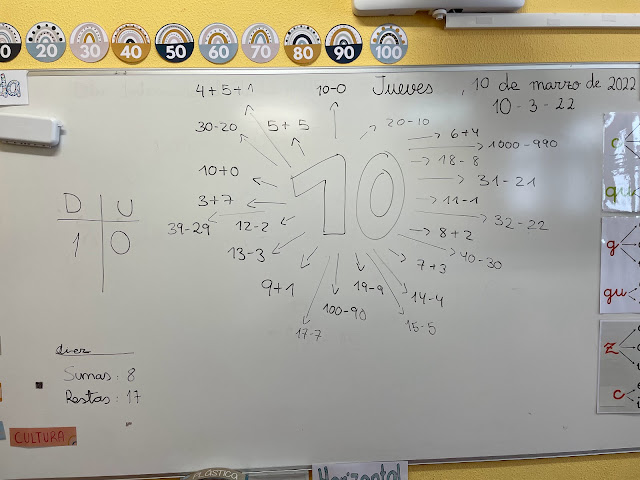 0 20 30 40 50 60 70 80 90 100
Jueves , 10 de marzo de 2022
10 - 3 - 22
4 + 5 + 1
10-0
30-20
5 + 5
20-10
6+4
1000-990
10+0
18-8
3+7
31-21
39-29
12-2
11-1
32-22
13-3
8+2
40-30
9+1
7+3
100-90
19-9
14-4
17-7
15-5
10
D U
1 0
diez
Sumas: 8
Restas: 17
CULTURA
PLÁSTICA
Horizontal
da
c
qu
g
gu
z
c